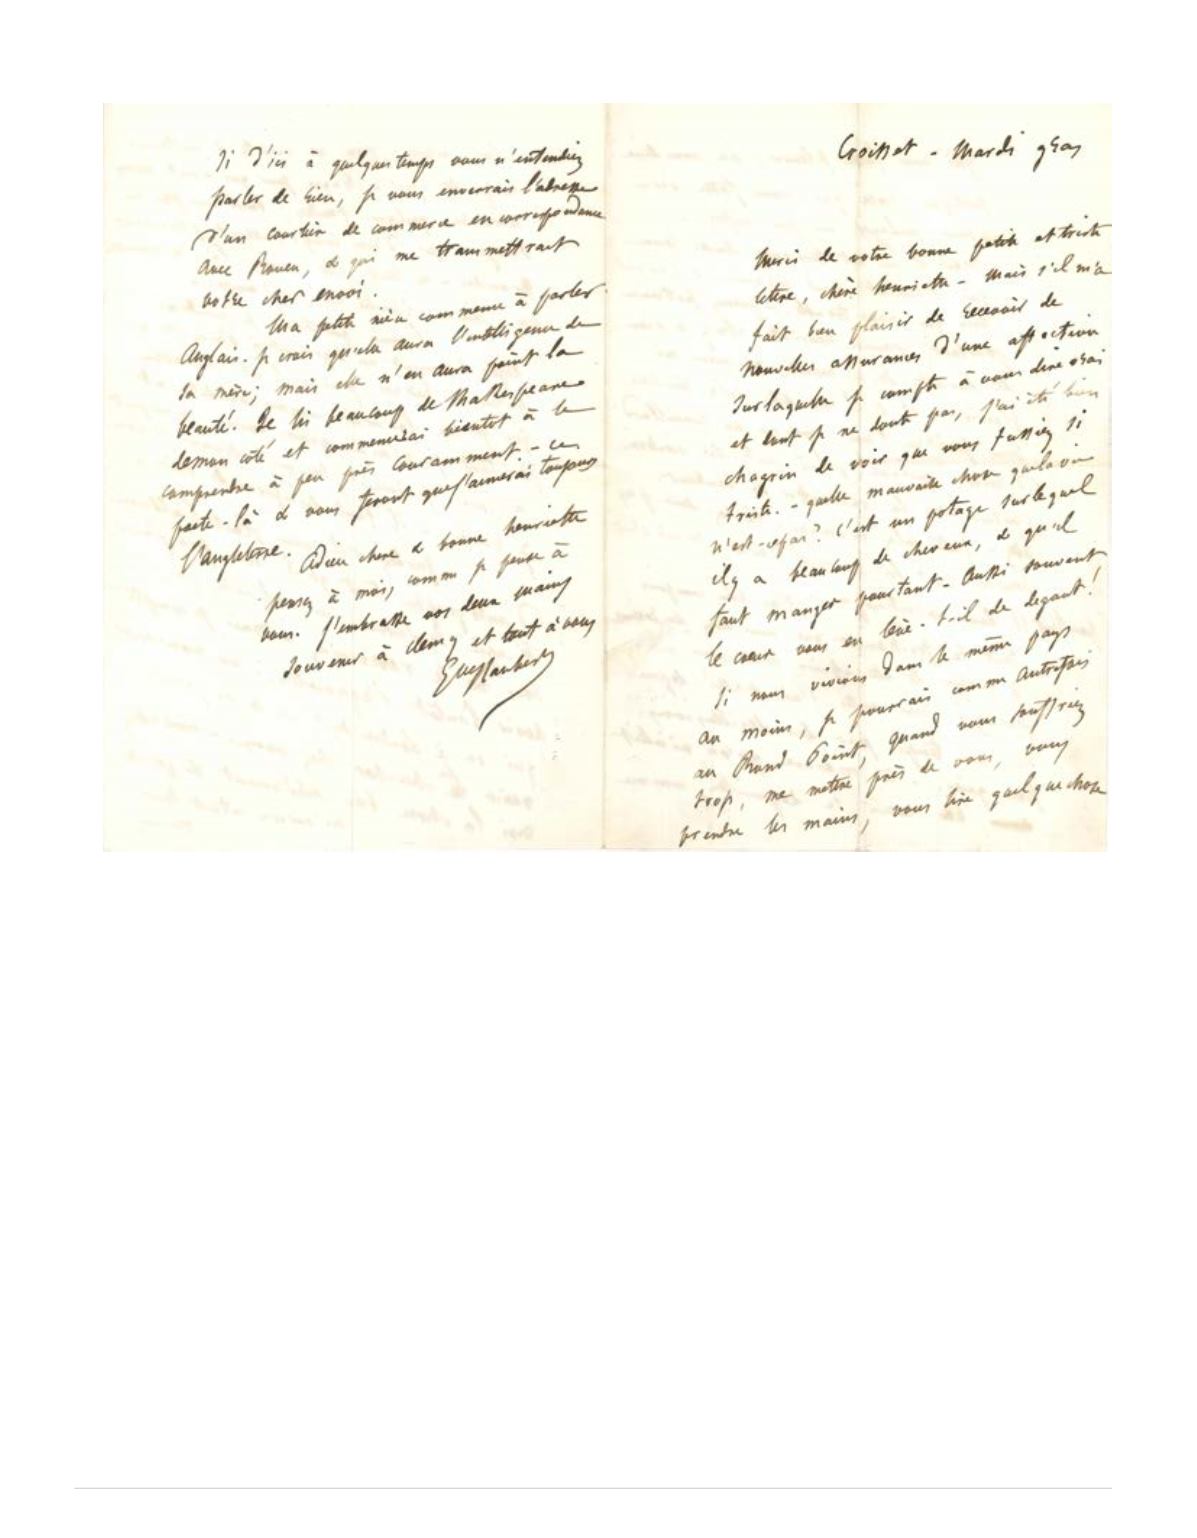 Croisset - Mardi gras
Merci de votre bonne petite et triste
lettre, chère henriette - Mais s'il m'a
fait bien plaisir de recevoir de
nouvelles assurances d'une affection
sur laquelle je compte à vous dire vrai
et dont je ne doute pas, j'ai été bien
chagrin de voir que vous fussiez si
triste. - quelle mauvaise chose que la vie
n'est-ce pas? C'est un potage sur lequel
il y a beaucoup de cheveux, & qu'il
faut manger pourtant - Aussi souvent
le coeur vous en lève-t-il de degout!
Si nous vivions dans le même pays
au moins, je pourrais comme autrefois
au Rond Point, quand vous souffriez
trop, me mettre près de vous, vous
prendre les mains, vous lire quelque chose
Si d'ici à quelques temps vous n'entendiez
parler de rien, je vous enverrais l'adresse
d'un courtier de commerce en correspondance
avec Rouen, & qui me transmettrait
votre cher envoi.
Ma petite nièce commence à parler
Anglais. je crois qu'elle aura l'intelligence de
sa mère; mais elle n'en aura point la
beauté. Je lis beaucoup de Shakespeare
de mon côté et commencerai bientot à le
comprendre à peu près couramment. - ce
poete-là & vous feront que j'aimerai toujours
l'angleterre. Adieu chere & bonne henriette
pensez à moi, comme je pense à
vous. J'embrasse vos deux mains
Souvenir à clemy et tout à vous
Gve Flaubert